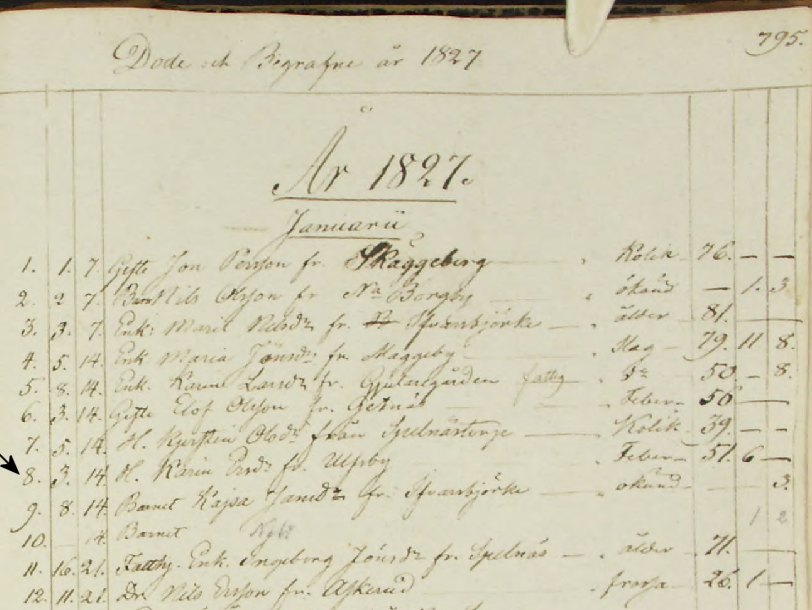 795.
Döde och Begrafne år 1827
År 1827.
Januarii
1. 1. 7. Gifte Jon Persson fr. Skäggeberg — Kolik — 76. — —
2. 2 7. Barn Nils Olsson fr N:a Borgby — okänd — 1. 3.
3. 3. 7. Enk: Marit Nilsd:r fr. Ifvarsbjörke — ålder — 81. —
4. 5. 14. Enk Maria Jönsd:r fr. Maggeby — Slag — 79. 11 8.
5. 8. 14. Enk. Karin Larsd:r fr. Gunnegården fattig — D:o 50 — 8.
6. 3. 14. Gifte Elof Olsson fr. Getnäs — Feber — 56 —
7. 5. 14. H. Kjerstin Olsd:r från — Kolik — 39. — —
8. 3. 14 H. Karin Ersd:r fr. Ulfsby — Feber — 51. 6 —
9. 8. 14 Barnet Kajsa Jansd:r fr. Ifvarsbjörke — okänd — 3.
10. — 14. Barnet 1 2
11. 16. 21. Fattihj. Enk. Ingeborg Jönsd:r fr. Spelnäs — ålder — 71. —
12. 11. 21. Dr. Nils Ersson fr. Askerud — frossa — 26. 1 —